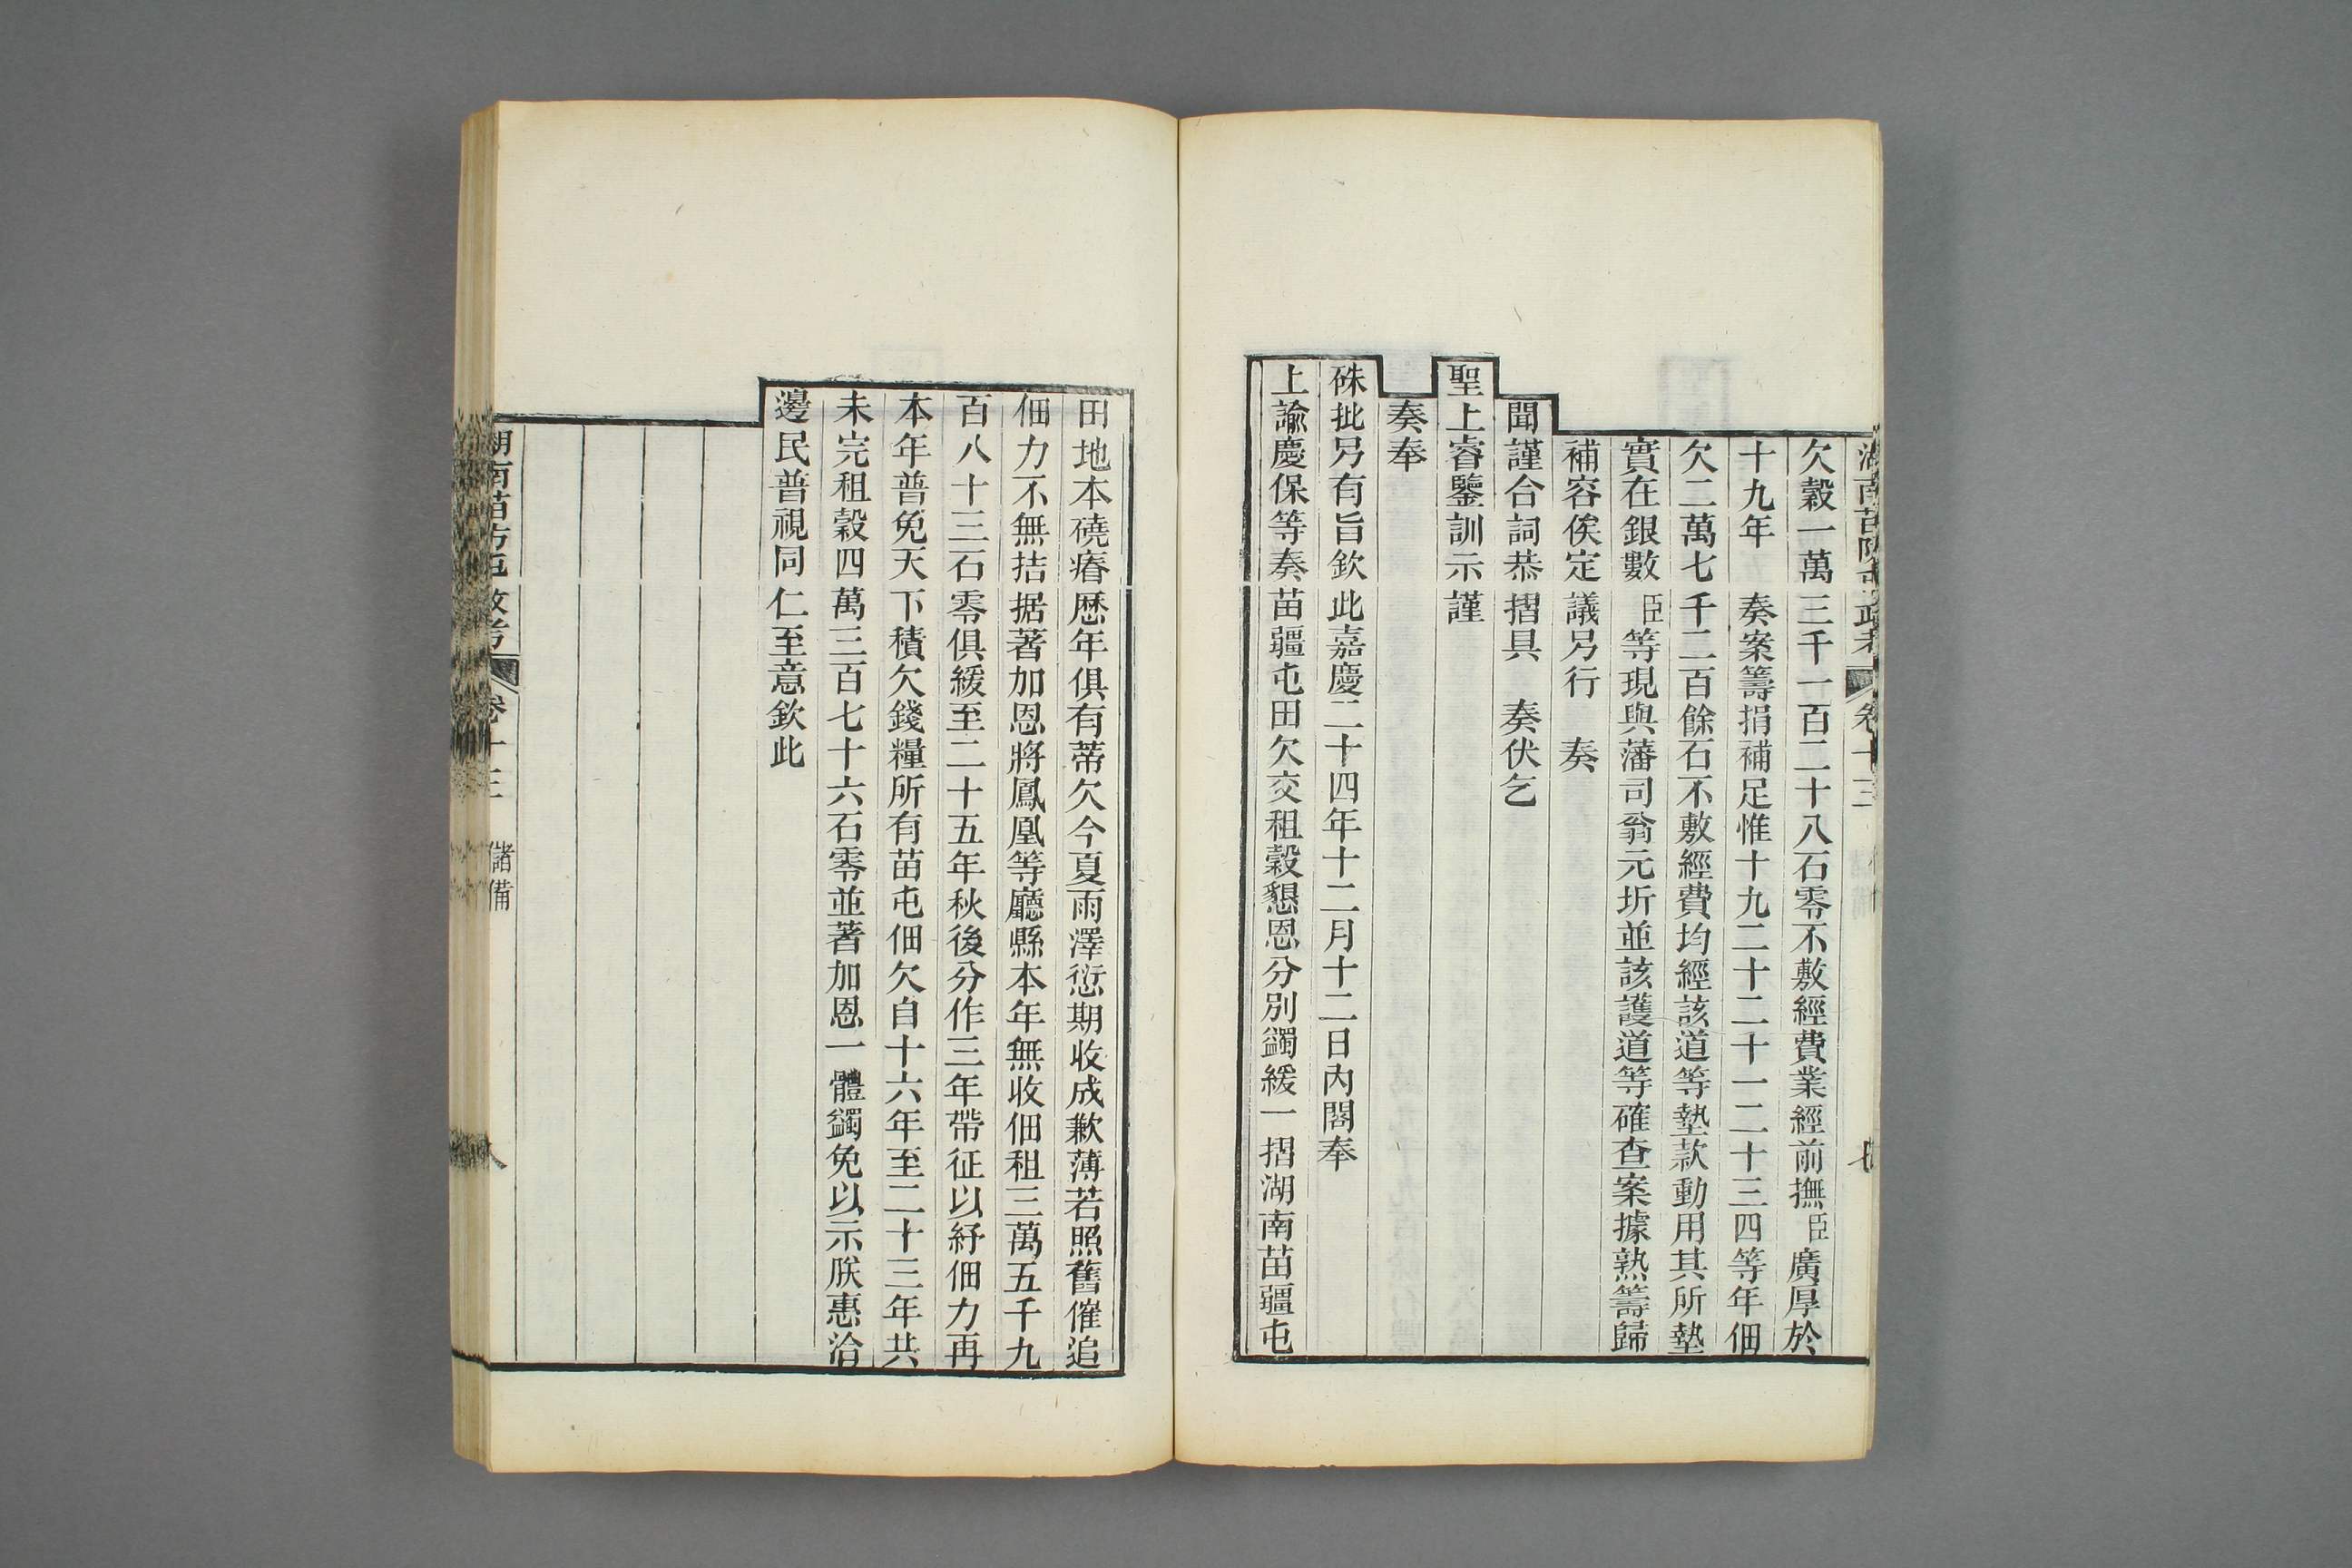 湖南苗防屯政考 卷十三 七
欠穀一萬三千一百二十八石零不敷經費業經前撫臣廣厚於
十九年 奏案籌捐補足惟十九二十二十一二十三四等年佃
欠二萬七千二百餘石不敷經費均經該道等墊款動用其所墊
實在銀數 臣等現與藩司翁元圻並該護道等確查案據熟籌歸
補容俟定議另行 奏
聞謹合詞恭摺具 奏伏乞
聖上睿鑒訓示謹
奏奉
硃批另有旨欽此嘉慶二十四年十二月十二日內閣奉
上諭慶保等奏苗疆屯田欠交租穀懇恩分別蠲緩一摺湖南苗疆屯
田地本磽瘠歷年俱有蒂欠今夏雨澤愆期收成歉薄若照舊催追
佃力不無拮据著加恩將鳳凰等廳縣本年無收佃租三萬五千九
百八十三石零俱緩至二十五年秋後分作三年帶征以紓佃力再
本年普免天下積欠錢糧所有苗屯佃欠自十六年至二十三年共
未完租穀四萬三百七十六石零並著加恩一體蠲免以示朕惠洽
邊民普視同仁至意欽此
湖南苗防屯政考 卷十三 儲備 八